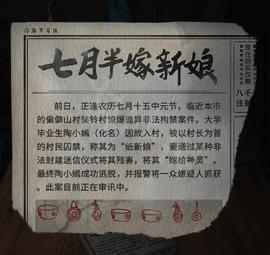 七月半嫁新娘
前日，正逢农历七月十五中元节，临近本市
的偏僻山村奘铃村惊爆诡异非法拘禁案件。大学
毕业生陶小嫣（化名）因故入村，被以村长为首
的村民囚禁，称其为“纸新娘”，要通过某种非
法封建迷信仪式将其残害，将其“嫁给神灵”。
最终陶小嫣成功逃脱，并报警将一众嫌疑人抓获
。此案目前正在审讯中。